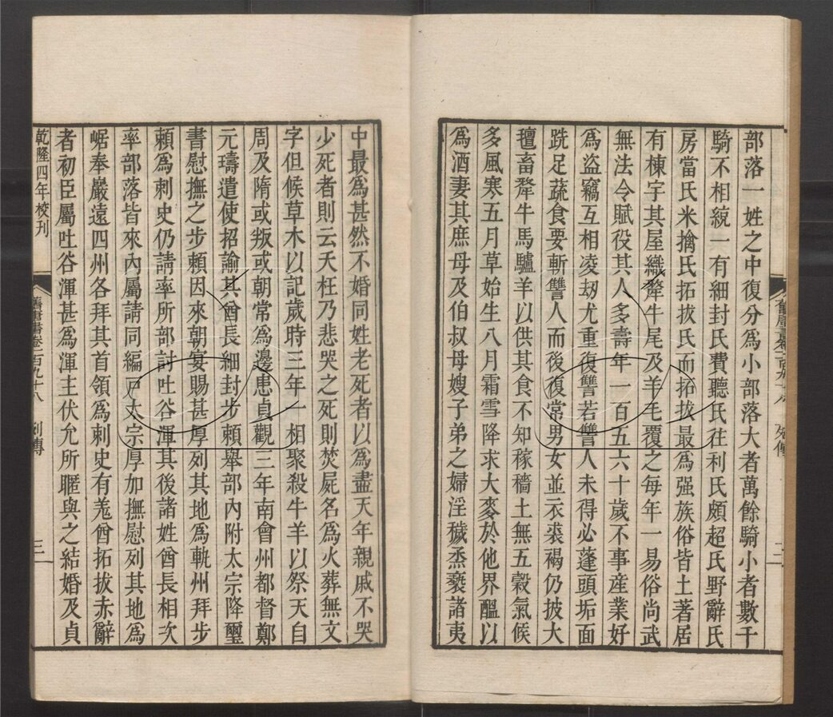 部落一姓之中復分爲小部落大者萬餘騎小者數千
騎不相統一有細封氏費聽氏往利氏頗超氏野辭氏
房當氏米擒氏拓拔氏而拓拔最爲强族俗皆土著居
有棟宇其屋織犛牛尾及羊毛覆之每年一易俗尚武
無法令賦役其人多壽年一百五六十歲不事産業好
爲盜竊互相凌刼尤重復讐若讐人未得必蓬頭垢面
跣足蔬食要斬讐人而後復常男女並衣裘褐仍披大
氊畜犛牛馬驢羊以供其食不知稼穡土無五穀氣候
多風寒五月草始生八月霜雪降求大麥於他界醞以
爲酒妻其庶母及伯叔母嫂子弟之婦淫穢烝褻諸夷
中最爲甚然不婚同姓老死者以爲盡天年親戚不哭
少死者則云夭枉乃悲哭之死則焚屍名爲火葬無文
字但候草木以記歲時三年一相聚殺牛羊以祭天自
周及隋或叛或朝常爲邊患貞觀三年南會州都督鄭
元璹遣使招諭其酋長細封步賴舉部內附太宗降璽
書慰撫之步賴因來朝宴賜甚厚列其地爲軌州拜步
賴爲刺史仍請率所部討吐谷渾其後諸姓酋長相次
率部落皆來內屬請同編戸太宗厚加撫慰列其地爲
崌奉巖遠四州各拜其首領爲刺史有羌酋拓拔赤辭
者初臣屬吐谷渾甚爲渾主伏允所暱與之結婚及貞
乾隆四年校刊
舊唐書卷一百九十八
列傳
三